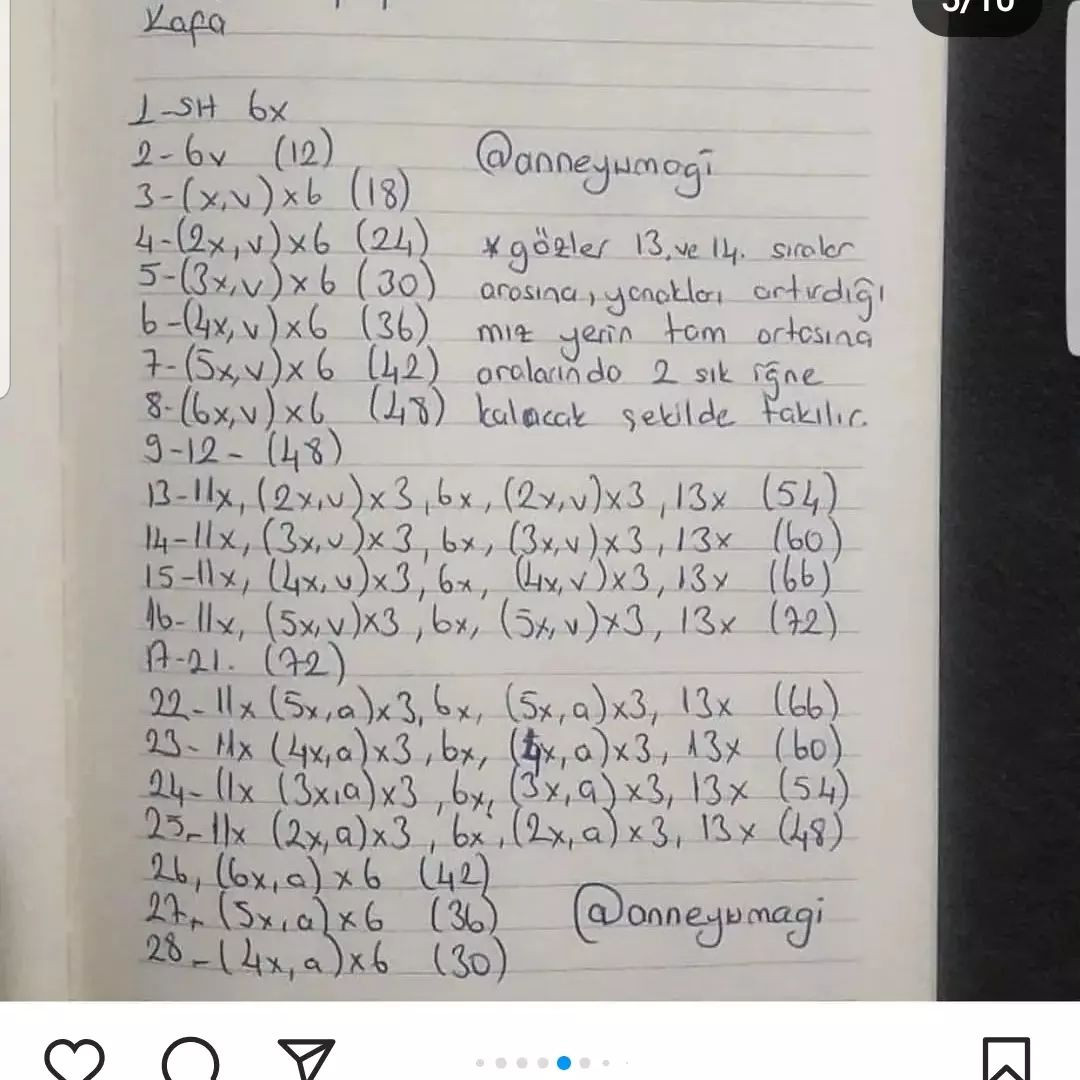 Kafa
1-SH 6x
2-6v (12)
@anneyumagi
3-(x,v)x6 (18)
4-(2x,v)x6 (24)
5-(3x,v)x6 (30)
6-(4x,v)x6 (36)
7-(5x,v)x6 (42)
8-(6x,v)x6 (48)
*gözler 13.ve 14. sıralar
arasına, yanakları artırdığı
mız yerin tam ortasına
aralarında 2 sık iğne
kalacak şekilde takılır.
9-12- (48)
13-11x, (2x,v)x3, 6x, (2x,v)x3, 13x (54)
14-11x, (3x,v)x3, 6x, (3x,v)x3, 13x (60)
15-11x, (4x,v)x3, 6x, (4x,v)x3, 13x (66)
16-11x, (5x,v)x3, 6x, (5x,v)x3, 13x (72)
17-21. (72)
22-11x (5x,a)x3, 6x, (5x,a)x3, 13x (66)
23-11x (4x,a)x3, 6x, (4x,a)x3, 13x (60)
24-11x (3x,a)x3, 6x, (3x,a)x3, 13x (54)
25-11x (2x,a)x3, 6x, (2x,a)x3, 13x (48)
26, (6x,a)x6 (42)
27-(5x,a)x6 (36)
@anneyumagi
28-(4x,a)x6 (30)